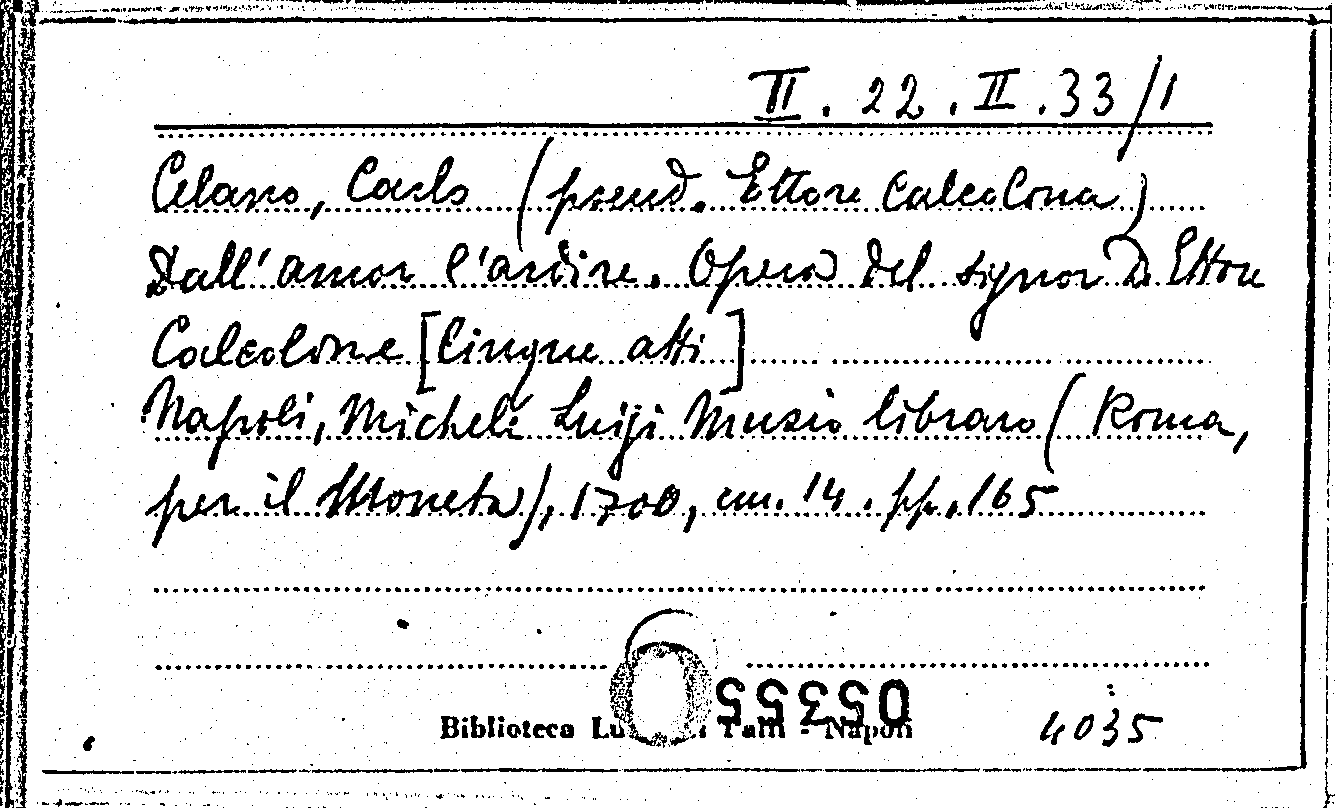 II. 22. II. 33/1
Celano, Carlo (pseud. Ettore Calcolona)
Dall'amor l'ardire. Opera del signor D. Ettore
Calcolone [Cinque atti]
Napoli, Michele Luigi Muzio libraro (Roma,
per il Moneta), 1700, cm. 14. pp. 165
05355
Biblioteca - Napoli
4035